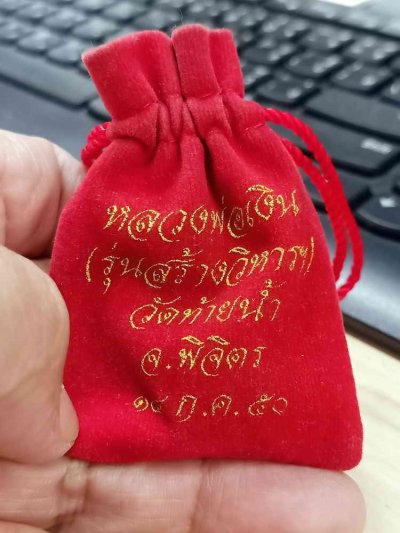 หลวงพ่อเงิน
(รุ่นสร้างวิหารฯ)
วัดท้ายน้ำ
จ.พิจิตร
๑๔ ก.ค. ๕๐